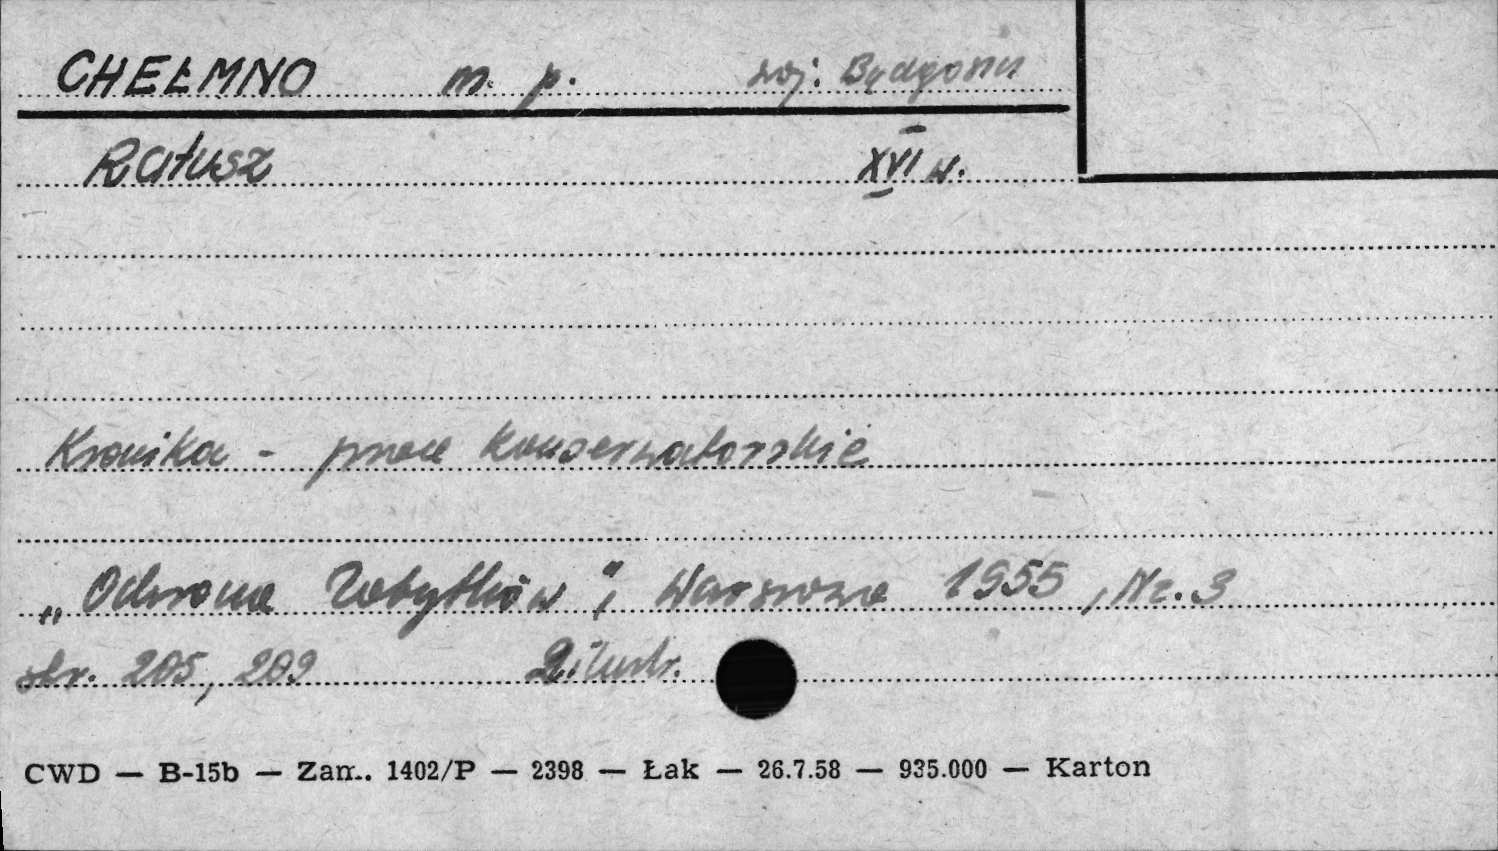 CHEŁMNO m. p. woj: Bydgoszcz
Ratusz XVI w.
Kronika - prace konserwatorskie
„Ochrona Zabytków", Warszawa 1955, Nr. 3
str. 205, 209 2 ilustr.
CWD — B-15b — Zam.. 1402/P — 2398 — Łak — 26.7.58 — 935.000 — Karton